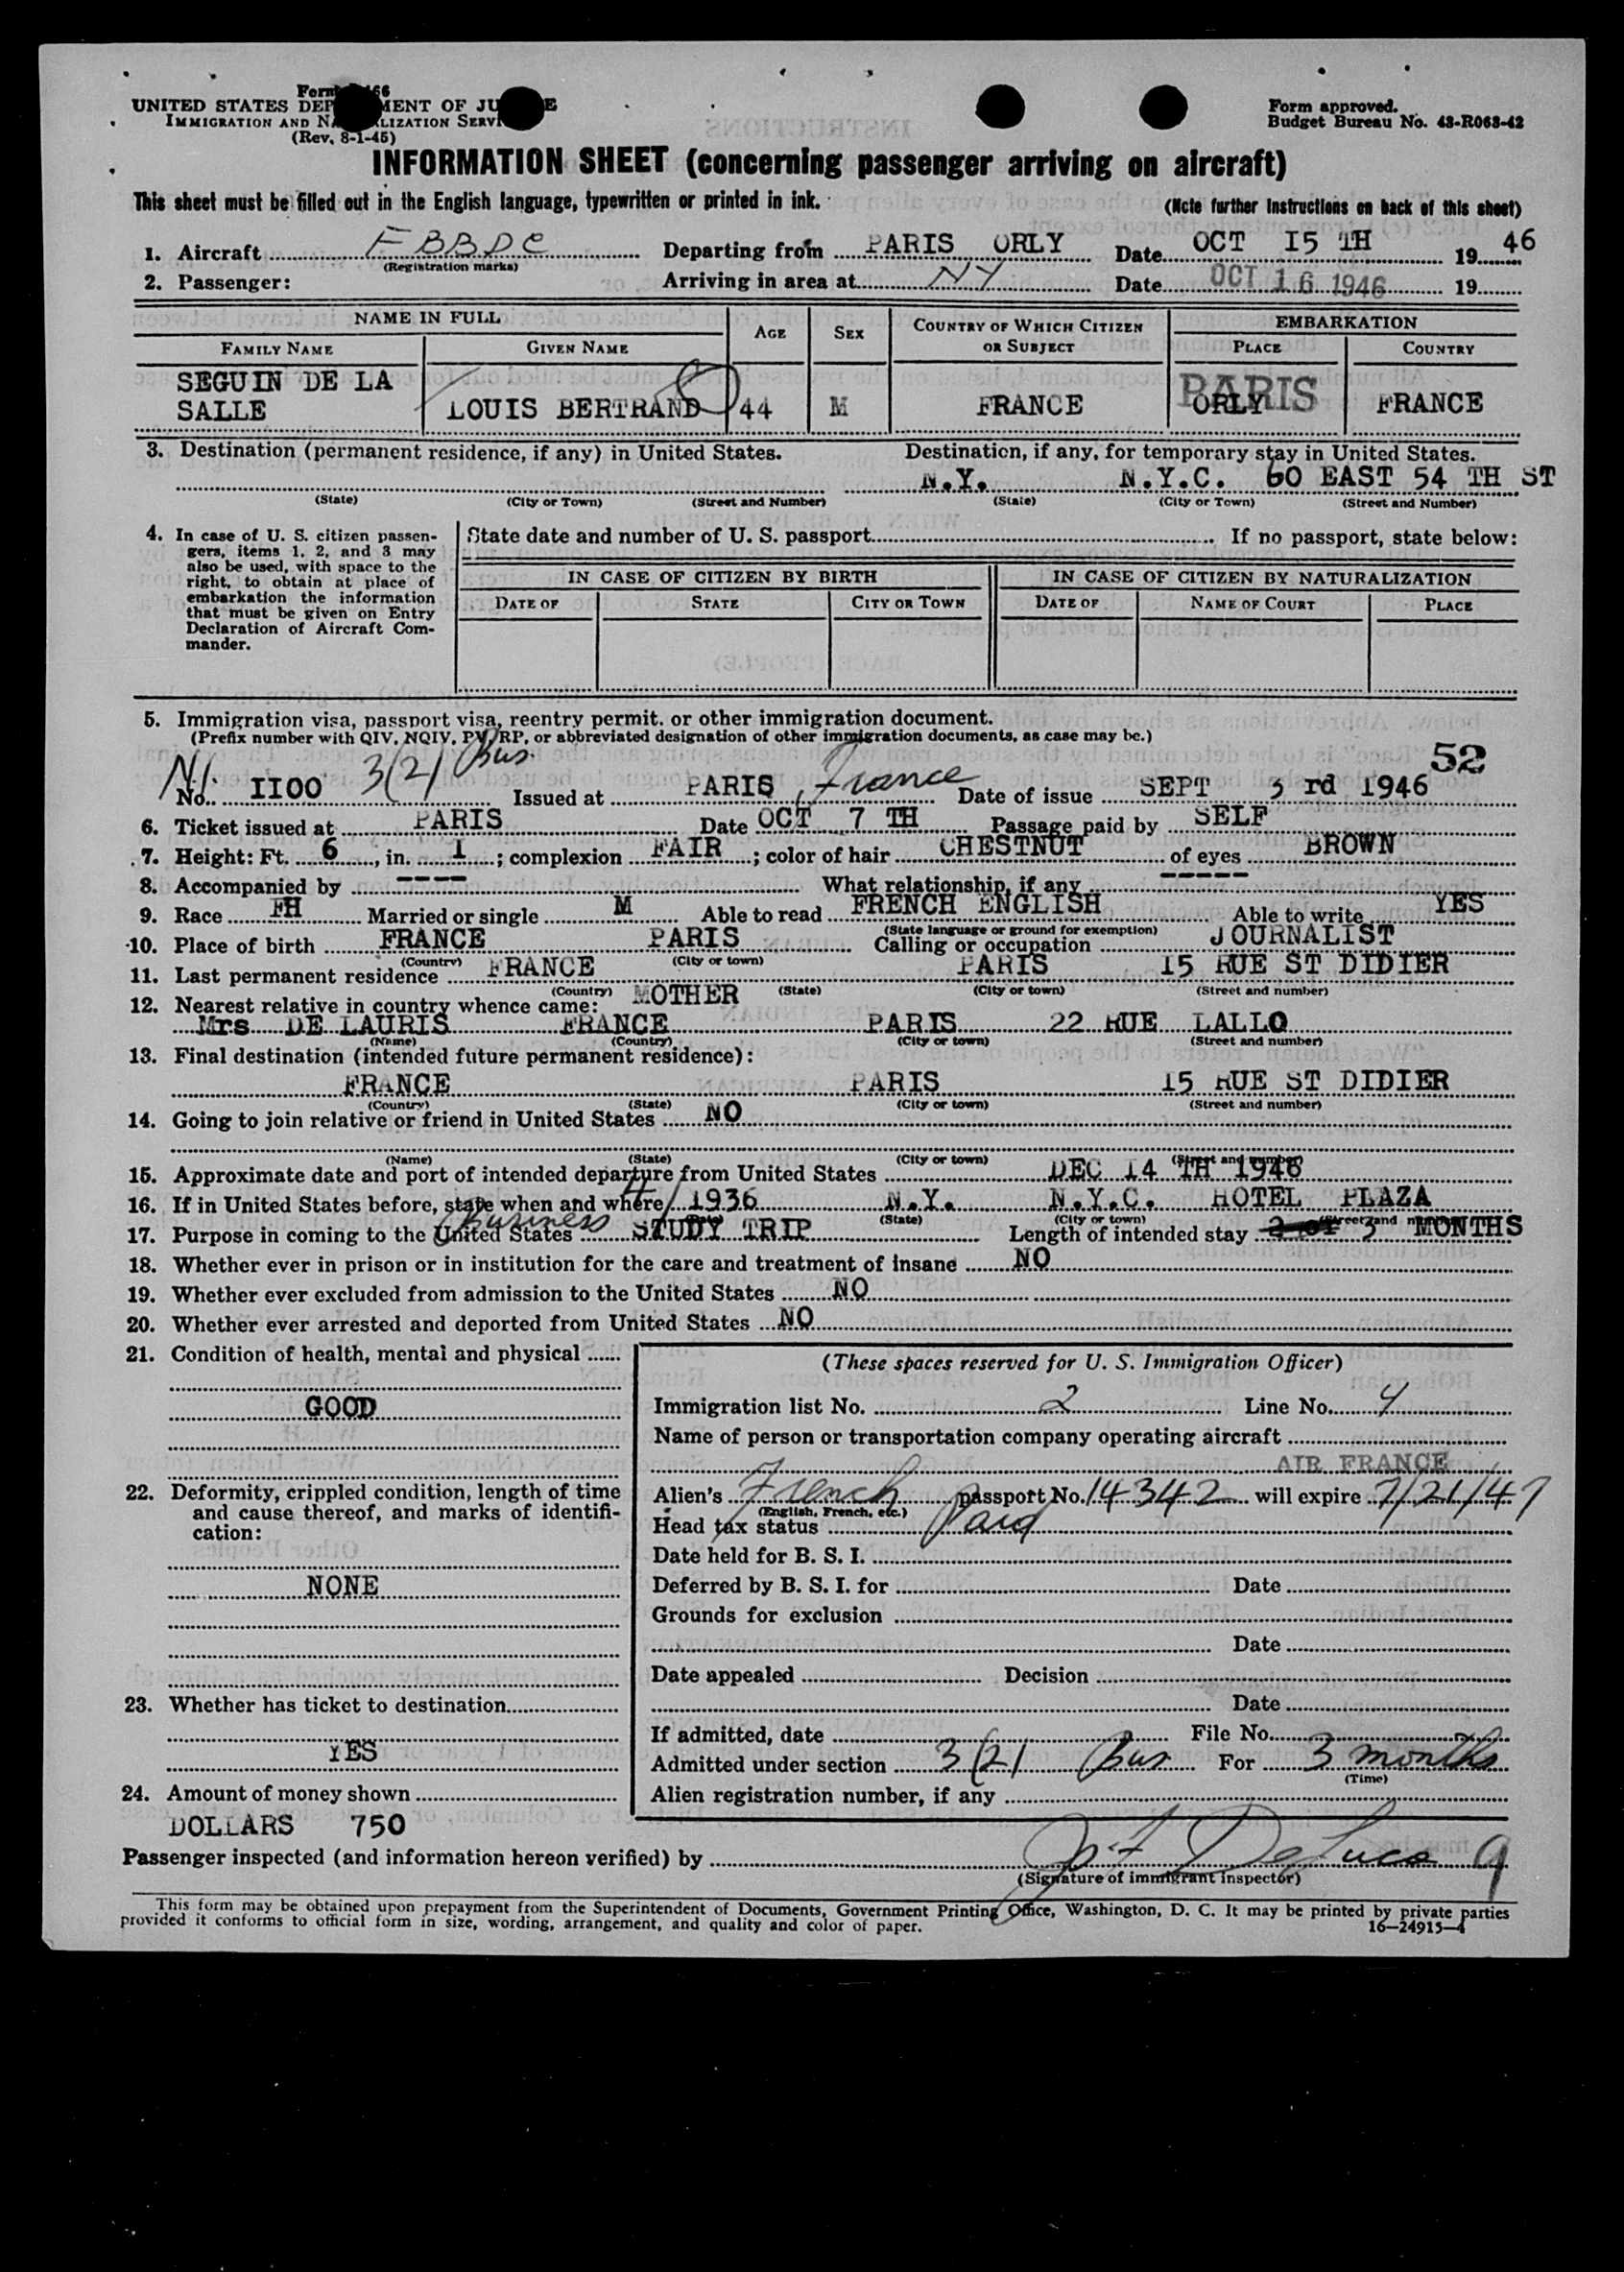 Form 66
UNITED STATES DEP MENT OF JU E
IMMIGRATION AND NA LIZATION SERVI
(Rev. 8-1-45)
Form approved.
Budget Bureau No. 43-R063-42
INFORMATION SHEET (concerning passenger arriving on aircraft)
This sheet must be filled out in the English language, typewritten or printed in ink.
(Note further Instructions on back of this sheet)
1. Aircraft F B B D C Departing from PARIS ORLY Date OCT I5 TH 19 46
(Registration marks)
2. Passenger: Arriving in area at NY Date OCT 16 1946 19
NAME IN FULL AGE SEX COUNTRY OF WHICH CITIZEN OR SUBJECT EMBARKATION
FAMILY NAME GIVEN NAME PLACE COUNTRY
SEGUIN DE LA PARIS
SALLE LOUIS BERTRAND 44 M FRANCE ORLY FRANCE
3. Destination (permanent residence, if any) in United States. Destination, if any, for temporary stay in United States.
N.Y. N.Y.C. 60 EAST 54 TH ST
(State) (City or Town) (Street and Number) (State) (City or Town) (Street and Number)
4. In case of U. S. citizen passengers, items 1, 2, and 3 may also be used, with space to the right, to obtain at place of embarkation the information that must be given on Entry Declaration of Aircraft Commander.
State date and number of U. S. passport If no passport, state below:
IN CASE OF CITIZEN BY BIRTH IN CASE OF CITIZEN BY NATURALIZATION
DATE OF STATE CITY OR TOWN DATE OF NAME OF COURT PLACE
5. Immigration visa, passport visa, reentry permit, or other immigration document.
(Prefix number with QIV, NQIV, PV, RP, or abbreviated designation of other immigration documents, as case may be.)
52
No. II00 3(2) Bus. Issued at PARIS, France Date of issue SEPT 3 rd 1946
6. Ticket issued at PARIS Date OCT 7 TH Passage paid by SELF
7. Height: Ft. 6, in. I; complexion FAIR; color of hair CHESTNUT of eyes BROWN
8. Accompanied by ---- What relationship, if any -----
9. Race FH Married or single M Able to read FRENCH ENGLISH Able to write YES
(State language or ground for exemption)
10. Place of birth FRANCE PARIS Calling or occupation JOURNALIST
(Country) (City or town)
11. Last permanent residence FRANCE PARIS I5 RUE ST DIDIER
(Country) (State) (City or town) (Street and number)
12. Nearest relative in country whence came: MOTHER
Mrs DE LAURIS FRANCE PARIS 22 RUE LALLO
(Name) (Country) (City or town) (Street and number)
13. Final destination (intended future permanent residence):
FRANCE PARIS I5 RUE ST DIDIER
(Country) (State) (City or town) (Street and number)
14. Going to join relative or friend in United States NO
(Name) (State) (City or town) (Street and number)
15. Approximate date and port of intended departure from United States DEC I4 TH 1946
16. If in United States before, state when and where 1936 N.Y. N.Y.C. HOTEL PLAZA
(State) (City or town) (Street and number)
17. Purpose in coming to the United States Business STUDY TRIP Length of intended stay 3 MONTHS
18. Whether ever in prison or in institution for the care and treatment of insane NO
19. Whether ever excluded from admission to the United States NO
20. Whether ever arrested and deported from United States NO
21. Condition of health, mental and physical
GOOD
22. Deformity, crippled condition, length of time and cause thereof, and marks of identification:
NONE
23. Whether has ticket to destination
YES
24. Amount of money shown
DOLLARS 750
(These spaces reserved for U. S. Immigration Officer)
Immigration list No. 2 Line No. 4
Name of person or transportation company operating aircraft
AIR FRANCE
Alien's French passport No. 14342 will expire 7/21/47
(English, French, etc.)
Head tax status Paid
Date held for B. S. I.
Deferred by B. S. I. for Date
Grounds for exclusion
Date
Date appealed Decision
Date
If admitted, date File No.
Admitted under section 3(2) Bus For 3 months
(Time)
Alien registration number, if any
Passenger inspected (and information hereon verified) by
(Signature of immigrant inspector)
9
This form may be obtained upon prepayment from the Superintendent of Documents, Government Printing Office, Washington, D. C. It may be printed by private parties
provided it conforms to official form in size, wording, arrangement, and quality and color of paper. 16—24915-4